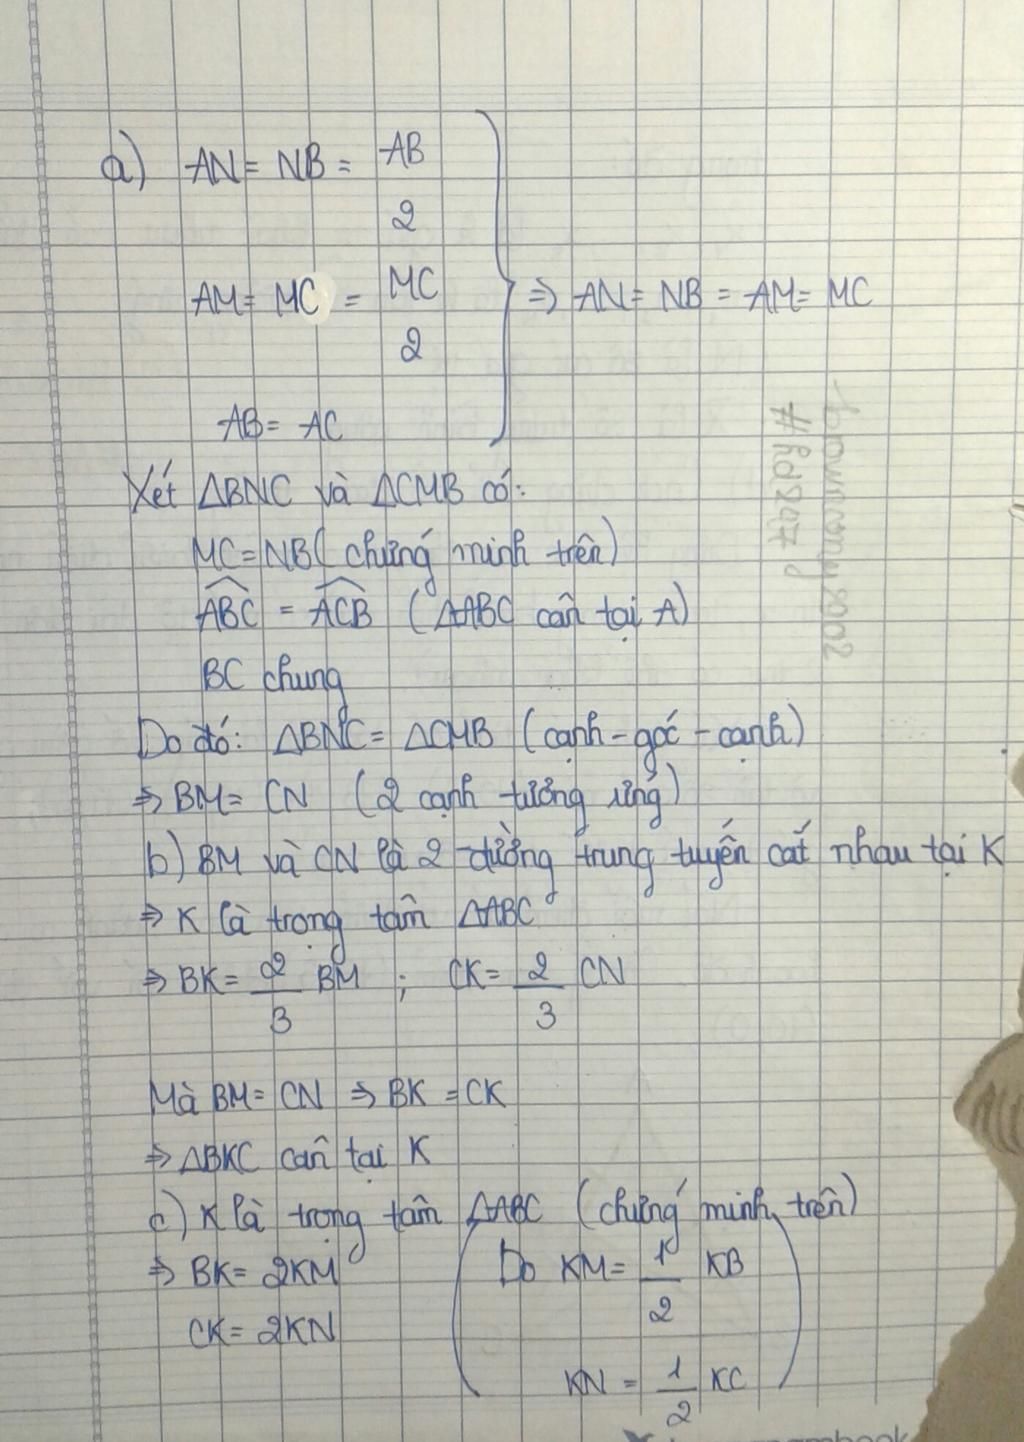 a) AN = NB = AB/2
AM = MC = MC/2 ⇒ AN = NB = AM = MC
AB = AC
Xét △BNC và △CMB có:
MC = NB (chứng minh trên)
ABC = ACB (△ABC cân tại A)
BC chung
Do đó: △BNC = △CMB (cạnh - góc - cạnh)
⇒ BM = CN (2 cạnh tương ứng)
b) BM và CN là 2 đường trung tuyến cắt nhau tại K
⇒ K là trọng tâm △ABC
⇒ BK = 2/3 BM ; CK = 2/3 CN
Mà BM = CN ⇒ BK = CK
⇒ △BKC cân tại K
c) K là trọng tâm △ABC (chứng minh trên)
⇒ BK = 2KM (Do KM = 1/2 KB
CK = 2KN
KN = 1/2 KC)